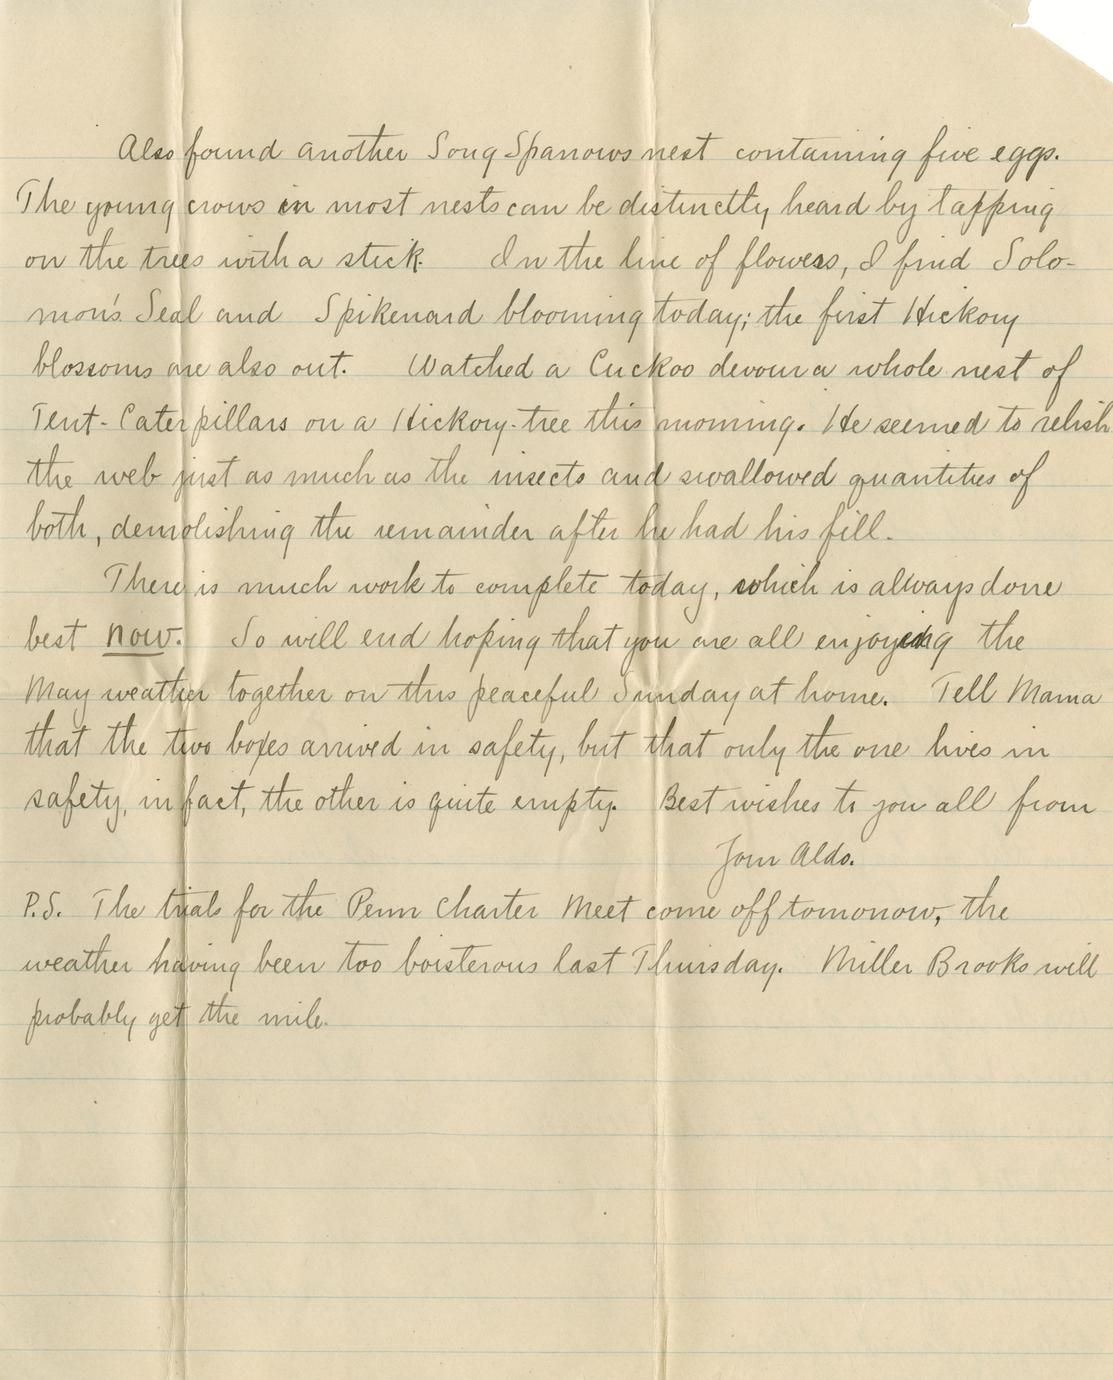 Also found another Song Sparrows nest containing five eggs.
The young crows in most nests can be distinctly heard by tapping
on the trees with a stick. In the line of flowers, I find Solo-
mon's Seal and Spikenard blooming today; the first Hickory
blossoms are also out. Watched a Cuckoo devour a whole nest of
Tent-Caterpillars on a Hickory-tree this morning. He seemed to relish
the web just as much as the insects and swallowed quantities of
both, demolishing the remainder after he had his fill.
There is much work to complete today, which is allways done
best now. So will end hoping that you are all enjoying the
May weather together on this peaceful Sunday at home. Tell Mama
that the two boxes arrived in safety, but that only the one lives in
safety, in fact, the other is quite empty. Best wishes to you all from
Your Aldo.
P.S. The trials for the Penn Charter Meet come off tomorrow, the
weather having been too boisterous last Thursday. Miller Brooks will
probably get the mile.